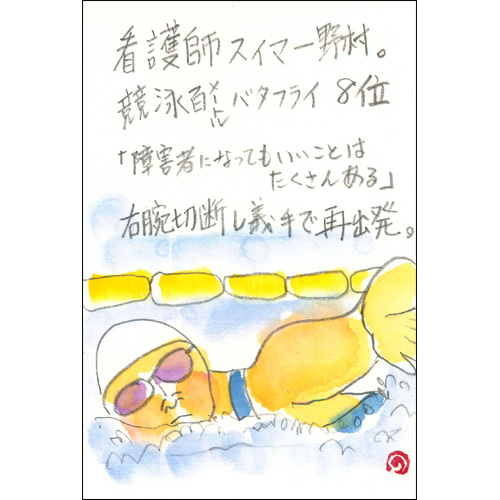 看護師スイマー野村。
競泳百メートルバタフライ 8位
「障害者になってもいいことは
たくさんある」
右腕切断し義手で再出発。